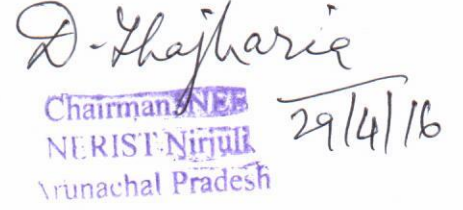 D. Jhajharia
Chairman, NEE
29/4/16
NERIST Nirjuli
Arunachal Pradesh